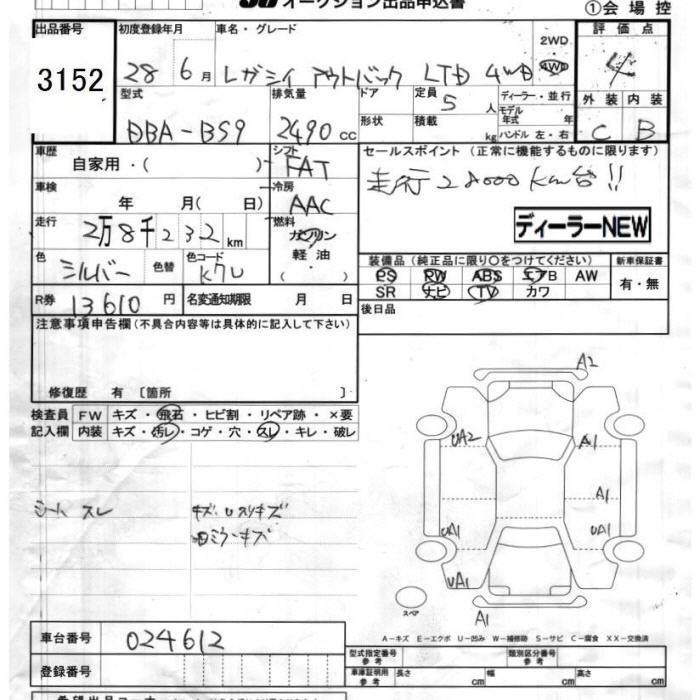 オークション出品申込書
①会場控
出品番号 初度登録年月 車名・グレード 2WD 評価点
3152 28 6月 レガシィ アウトバック LTD 4WD 4WD 4
型式 排気量 ドア 定員 5人 ディーラー・並行 外装 内装
DBA-BS9 2490cc 形状 積載 kg モデル年式 年 C B
ハンドル 左・右
車歴 シフト セールスポイント (正常に機能するものに限ります)
自家用・( ) FAT 走行28000Km台!!
車検 冷房
年 月( 日) AAC
走行 燃料 ディーラーNEW
2万8千232km ガソリン
色 色替 色コード 軽油・ 装備品(純正品に限り○をつけてください) 新車保証書
シルバー ( ) PS PW ABS エアB AW 有・無
SR ナビ TV カワ
R券 13610円 名変通知期限 月 日 後日品
注意事項申告欄(不具合内容等は具体的に記入して下さい)
修復歴 有 〔箇所 〕
検査員 FW キズ・飛石・ヒビ割・リペア跡・×要
記入欄 内装 キズ・汚レ・コゲ・穴・スレ・キレ・破レ
A2
UA2 A1
A1
UA1 UA1
UA1
A1
シート スレ キズ、Uスリキズ
ミラーキズ
スペア
A-キズ E-エクボ U-凹み W-補修跡 S-サビ C-腐食 XX-交換済
車台番号 024612
型式指定番号 参考 類別区分番号 参考
登録番号 車庫証明用 参考 長さ cm 幅 cm 高さ cm
希望出品コーナー